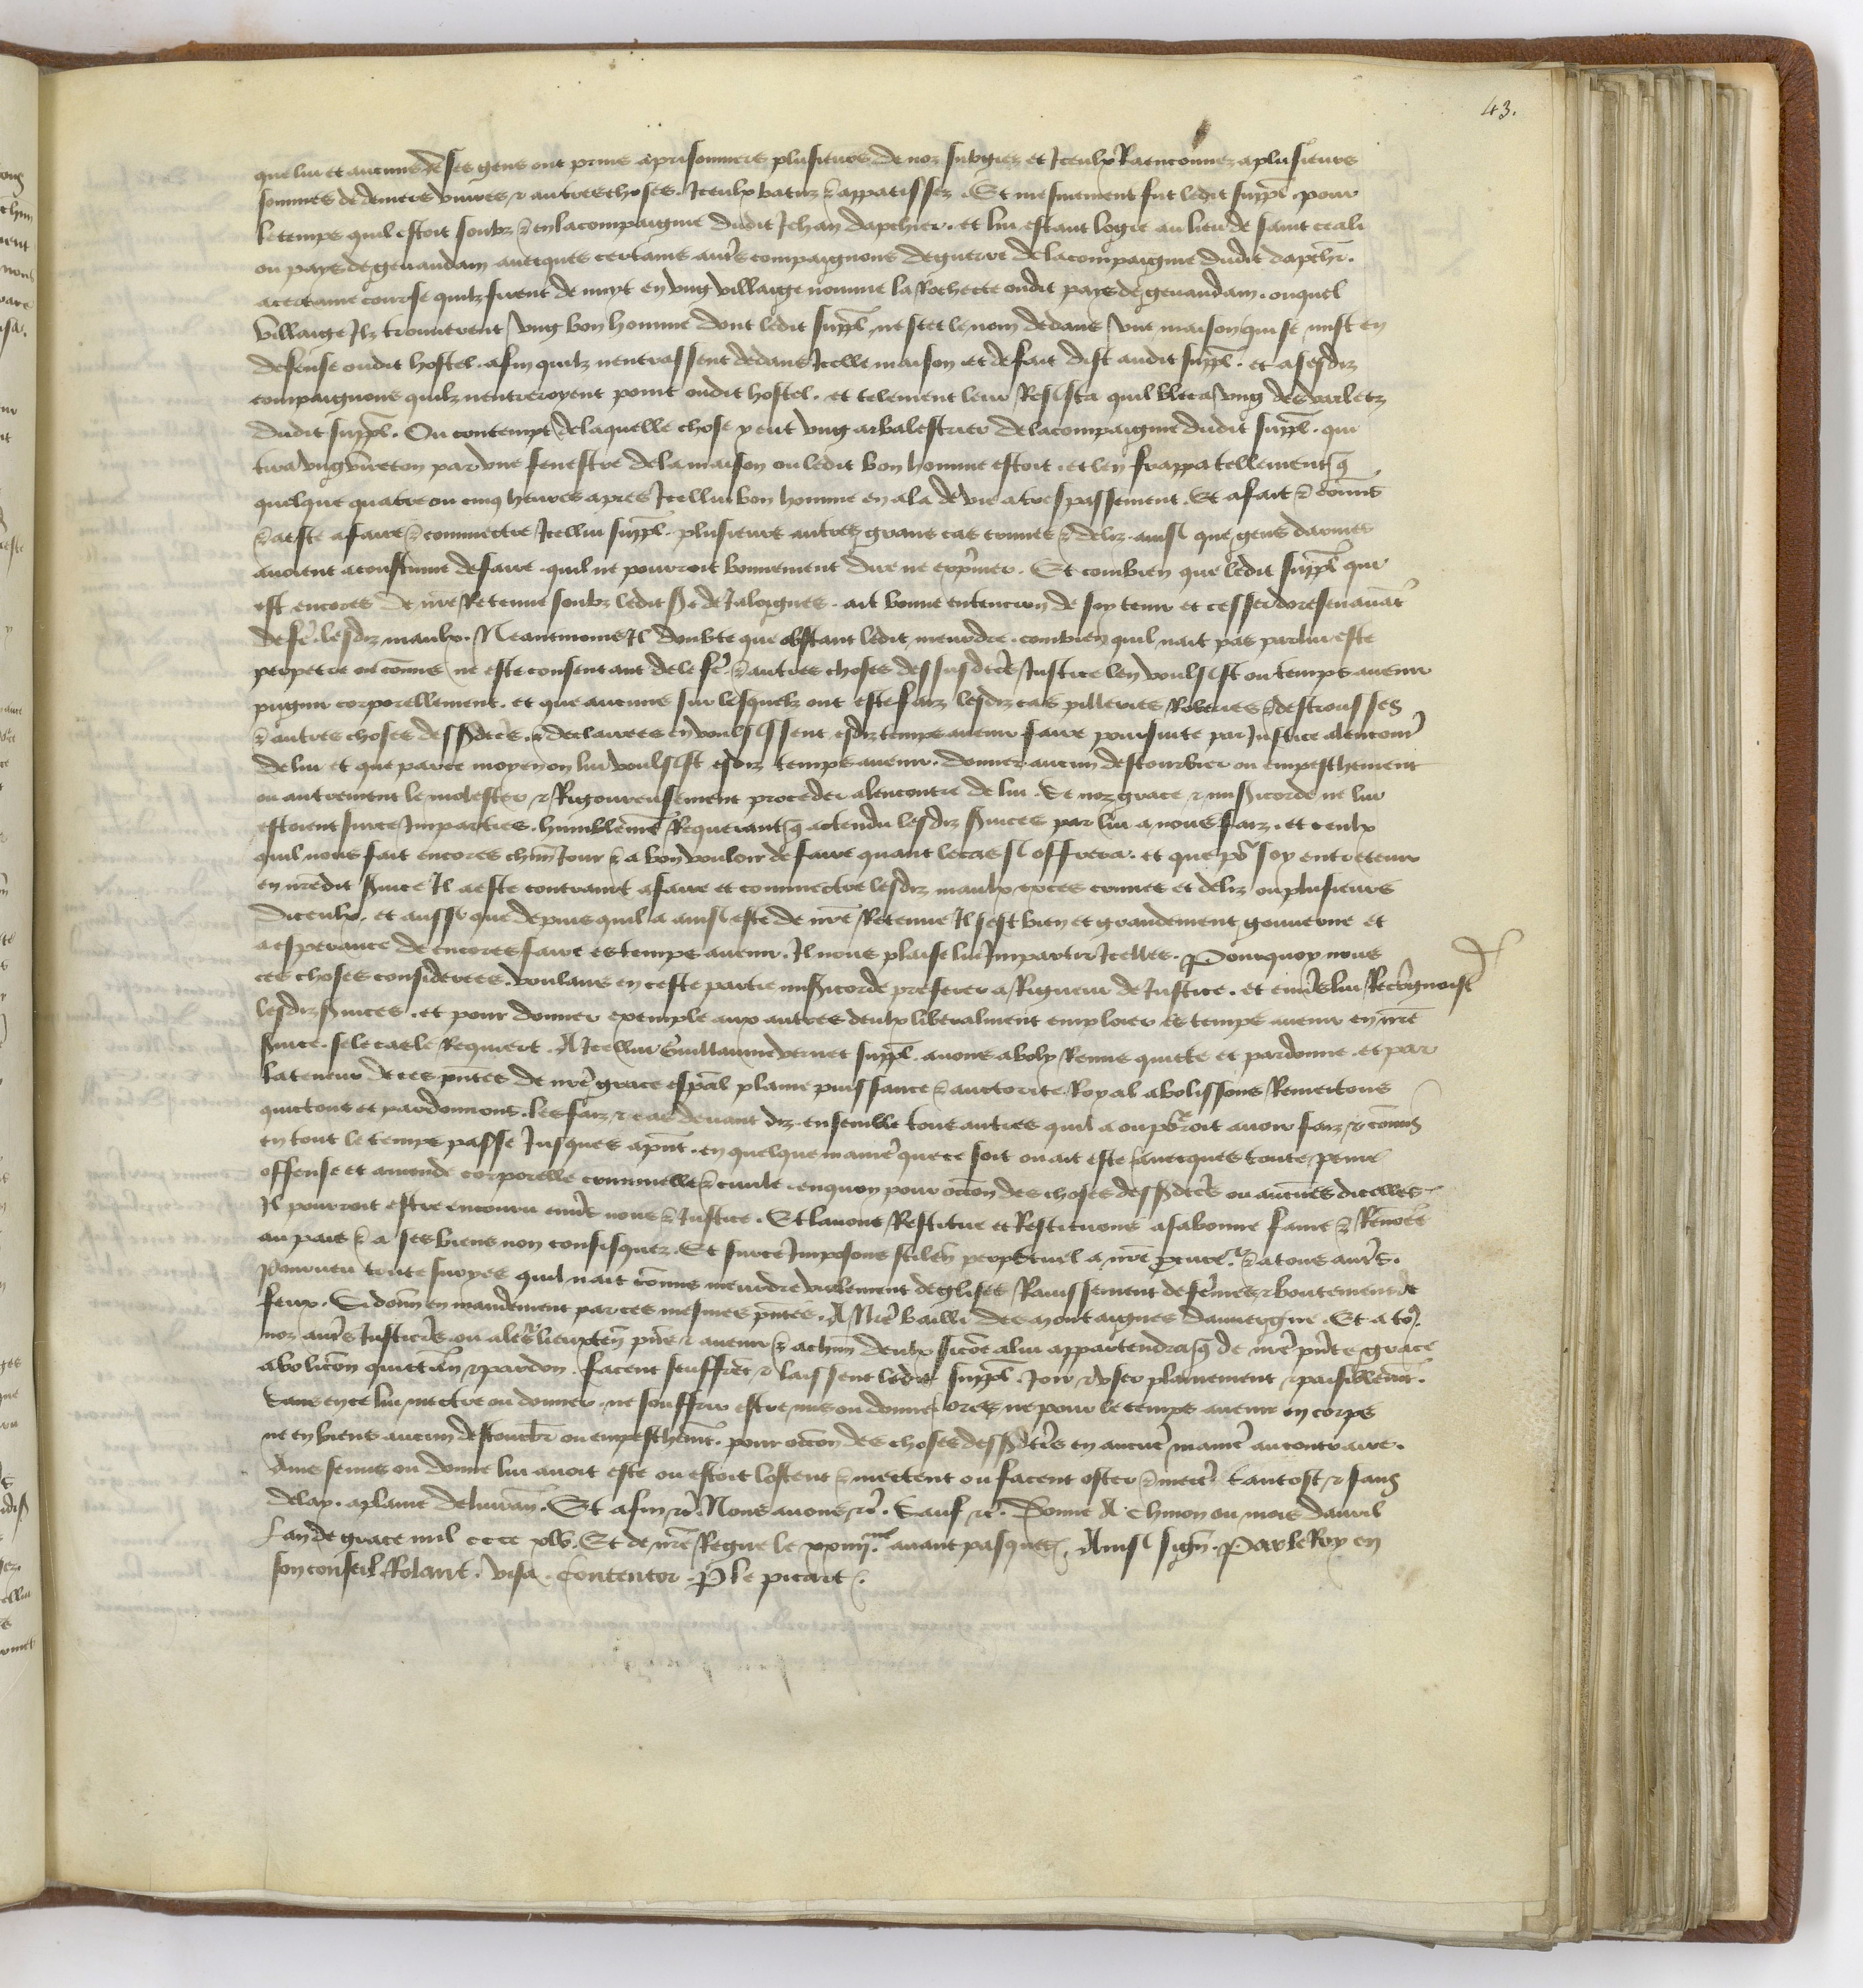 43.
que lui et aucuns de ses gens ont prins a prisonniers plusieurs de noz subgiez et Iceulx Raenconnez a plusieurs
sommes de deniers vivres & autres choses. Iceulx batuz & appatissez. Et mesmement fut ledit suppl. pour
le temps quil estoit soubz & en la compaignie dudit Jehan dapchier. et lui estant logie au lieu de saint
ou pays de gevaudam avecques certains autrs compaignons de guerre de la compaignie dudit dapchr.
a certaine course quilz firent de nuyt en ung villaige nomme la Rochecte oudit pays de gevaudam. ouquel
villaige Ilz trouverent ung bon homme dont ledit suppl. ne scet le nom dedans une maison qui se mist en
defense oudit hostel. afin quilz nentrassent dedans Icelle maison et de fait dist audit suppl. et a sesdiz
compaignons quilz nentreroyent point oudit hostel. et telement leur Resista quil bleca ung des varletz
dudit suppl. Ou contempt de laquelle chose y eut ung arbalestrier de la compaignie dudit suppl. qui
tira ung vireton par une fenestre de la maison ou ledit bon homme estoit. et len frappa tellement q
quelque quatre ou cinq heures apres Icellui bon homme en ala de vie a trespassement. Et a fait & comis
& a este a faire & commectre Icellui suppl. plusieurs autres grans cas crimes & deliz. ainsi que gens darmes
avoient acoustume de faire. quil ne pourroit bonnement dire ne exprimer. Et combien que ledit suppl. qui
est encores de nre Retenue soubz ledit sr de Jaloignes. ait bonne entencion de soy tenir et cesser doresenavat
de fe. lesdiz maulx. Neantmoins Il doubte que obstant ledit meurdre. combien quil nait pas par lui este
perpetre ou comis ne este consentant de le fe. & autres choses dessusdctes Justice len voulsist ou temps avenir
pugnir corporellement. et que aucuns sur lesquelz ont este faiz lesdiz cas pilleries Roberies & destrousses
& autres choses dessdctes. & declairees en voulsissent esdiz temps avenir faire poursuite par Justice alencontr
de lui et que par ce moyen on lui voulsist esdiz temps avenir. donner aucun destourbier ou empeschement
ou autrement le molester & Rigoureusement proceder alencontre de lui. se noz grace & misicorde ne lui
estoient sur ce Imparties. humblemt Requerant q actendu lesdiz suices par lui a nous faiz. et ceulx
quil nous fait encores chun Jour & a bon vouloir de faire quant le cas si offrera. et que por soy entretenir
en nredit suice Il a este contraint a faire et commectre lesdiz maulx exces crimes et deliz ou plusieurs
diceulx. et aussi que depuis quil a ainsi este de nre Retenue Il sest bien et grandement gouverne et
a esperance de encores faire es temps avenir. Il nous plaise lui Impartir Icelles. Pourquoy nous
ces choses considerees. voulans en ceste partie misicorde preferer a Rigueur de Justice. et envrs lui Recongnoist
lesdiz suices. et pour donner exemple aux autres deulx liberalment emploier es temps avenir en nre
suice. se le cas le Requiert. A Icellui Guillaume vernet suppl. avons aboly Remis quicte et pardonne. et par
la teneur de ces pntes de nre grace espal plaine puissance & auctorite Royal abolissons Remectons
quictons et pardonnons. les faiz & cas devant diz. ensemble tous autres quil a ou porroit avoir faiz & comis
en tout le temps passe Jusques apnt. en quelque manie que ce soit ou ait este avecques toute peine
offense et amende corporelle criminelle & civile. en quoy pour occon des choses dessdctes ou aucunes dicelles
Il pourroit estre encouru envrs nous & Justice. Et lavons Restitue et Restituons a sa bonne fame & Renoee
au pais & a ses biens non confisquez. Et sur ce Imposons silen perpetuel a nre procr & a tous autrs.
Pourveu toutesvoyes quil nait comis meurdre violement deglises Ravissement de femes & boutement de
feux. Si donn en mandement par ces mesmes pntes. A Nre bailli des montaignes dauvergne. Et a to
noz autrs Justicirs ou a leurs lieuxten pns & avenir & achun deulx sicoe a lui appartendra q de nre pnte grace
abolicon quictan & pardon. facent seuffrt & laissent ledit suppl. Joir & user plainement & paisiblemt.
Sans en ce lui mectre ou donner. ne souffrir estre mis ou donne ores ne pour le temps avenir en corps
ne en biens aucun destourbr ou empeschemt. pour occon des choses dessdctes en aucune manie au contraire.
Ains se mis ou donne lui avoit este ou estoit lostent & mectent ou facent oster & mectr tantost & sans
delay. a plaine delivran. Et afin &c. Nous avons &c. Sauf &c. Donne A Chinon ou mois davril
Lan de grace mil cccc xlv. Et de nre Regne le xxiiiime avant pasques. Ainsi sign. Par le Roy en
son conseil Rolant. visa. Contentor. P le picart.